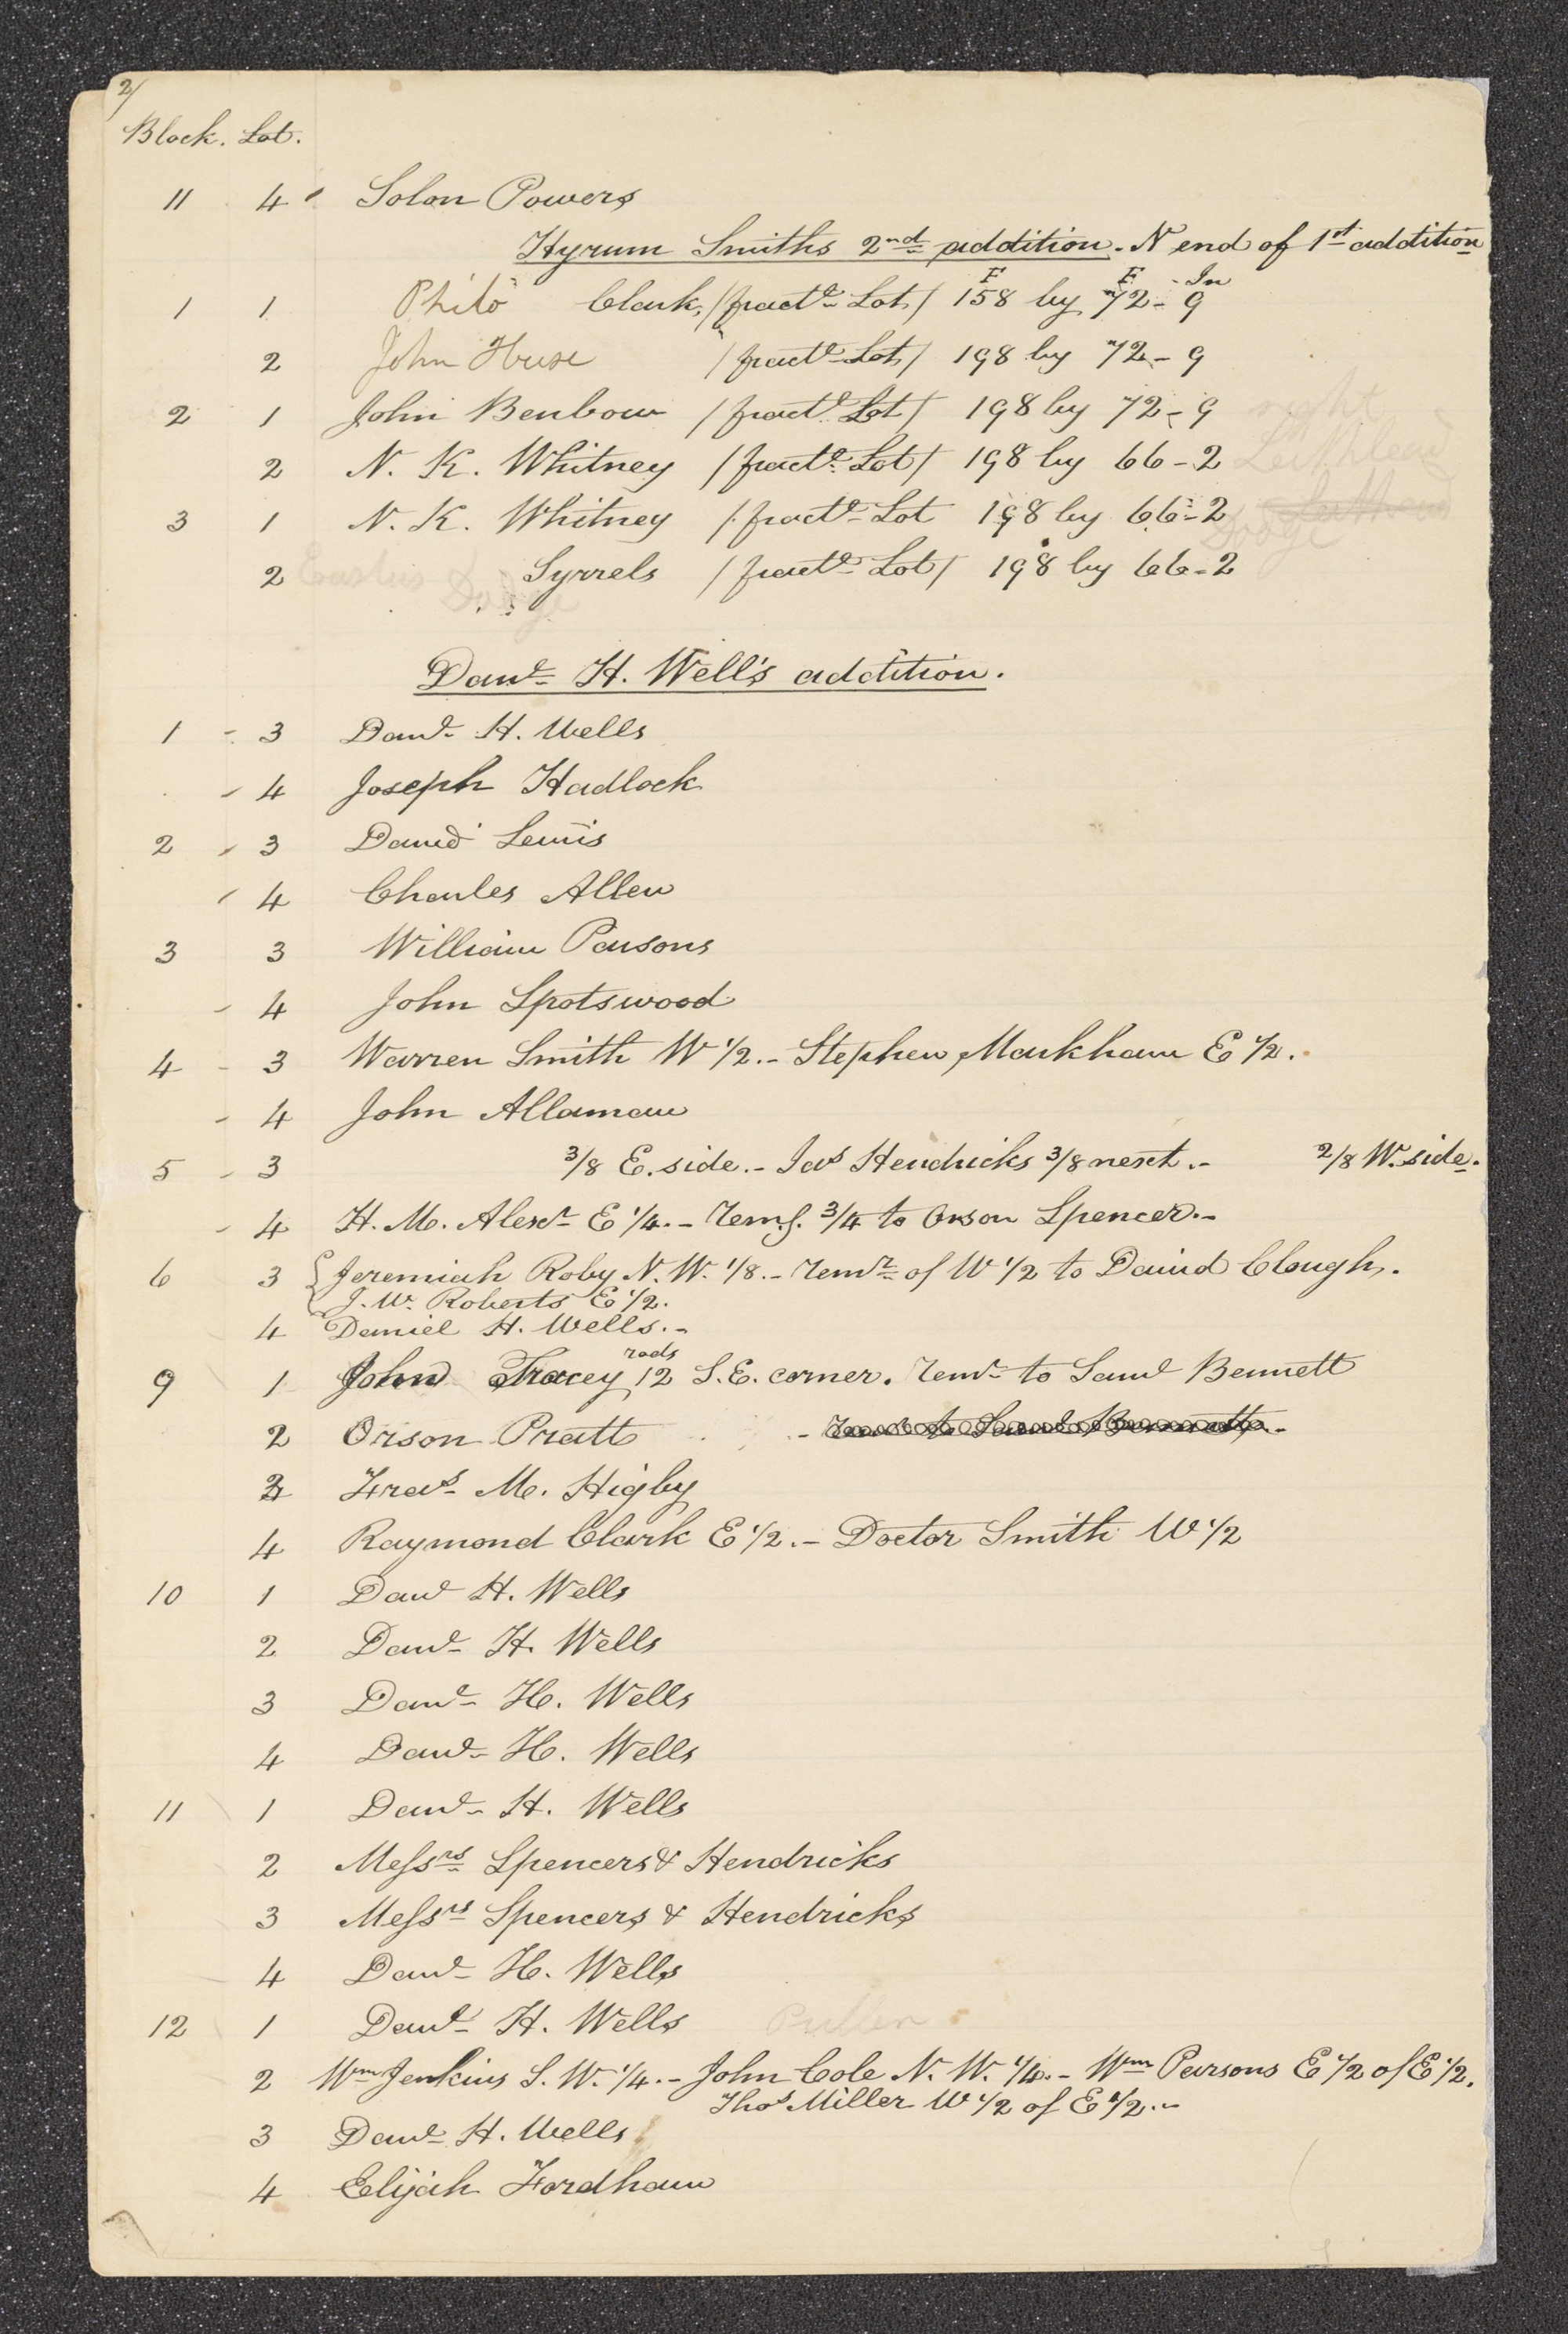 2/
Block. Lot.
11 4 Solon Powers
Hyrum Smiths 2nd addition. N end of 1st addition
F F In
1 1 Philo Clark, /fractl Lot/ 158 by 72 - 9
2 John Huse /fractl Lot/ 198 by 72 - 9
2 1 John Benbow /fractl Lot/ 198 by 72 - 9 right
2 N. K. Whitney /fractl Lot/ 198 by 66 - 2
3 1 N. K. Whitney /fractl Lot 198 by 66 - 2 Dodge
2 Erastus Dodge Syrrels /fractl Lot/ 198 by 66 - 2
Danl H. Well's addition.
1 - 3 Danl H. Wells
- 4 Joseph Hadlock
2 - 3 David Lewis
- 4 Charles Allen
3 3 William Parsons
- 4 John Spotswood
4 - 3 Warren Smith W 1/2. - Stephen Markham E 1/2.
- 4 John Allaman
5 - 3 3/8 E. side. - Jas Hendricks 3/8 next. - 2/8 W. side.
- 4 H. M. Alexr E 1/4. - remg. 3/4 to Orson Spencer. -
6 3 { Jeremiah Roby N. W. 1/8. - remr of W 1/2 to David Clough.
J. W. Roberts E 1/2.
4 Daniel H. Wells. -
rods
9 1 John Tracey 12 S.E. corner. remr to Saml Bennett
2 Orson Pratt - remr to Saml Bennett. -
3 Fras M. Higby
4 Raymond Clark E 1/2. - Doctor Smith W 1/2
10 1 Danl H. Wells
2 Danl H. Wells
3 Danl H. Wells
4 Danl H. Wells
11 1 Danl H. Wells
2 Messrs Spencers & Hendricks
3 Messrs Spencers & Hendricks
4 Danl H. Wells
12 1 Danl H. Wells Pullen
2 Wm Jenkins S. W. 1/4. - John Cole N. W. 1/4. - Wm Parsons E 1/2 of E 1/2.
Thos Miller W 1/2 of E 1/2. -
3 Danl H. Wells
4 Elijah Fordham